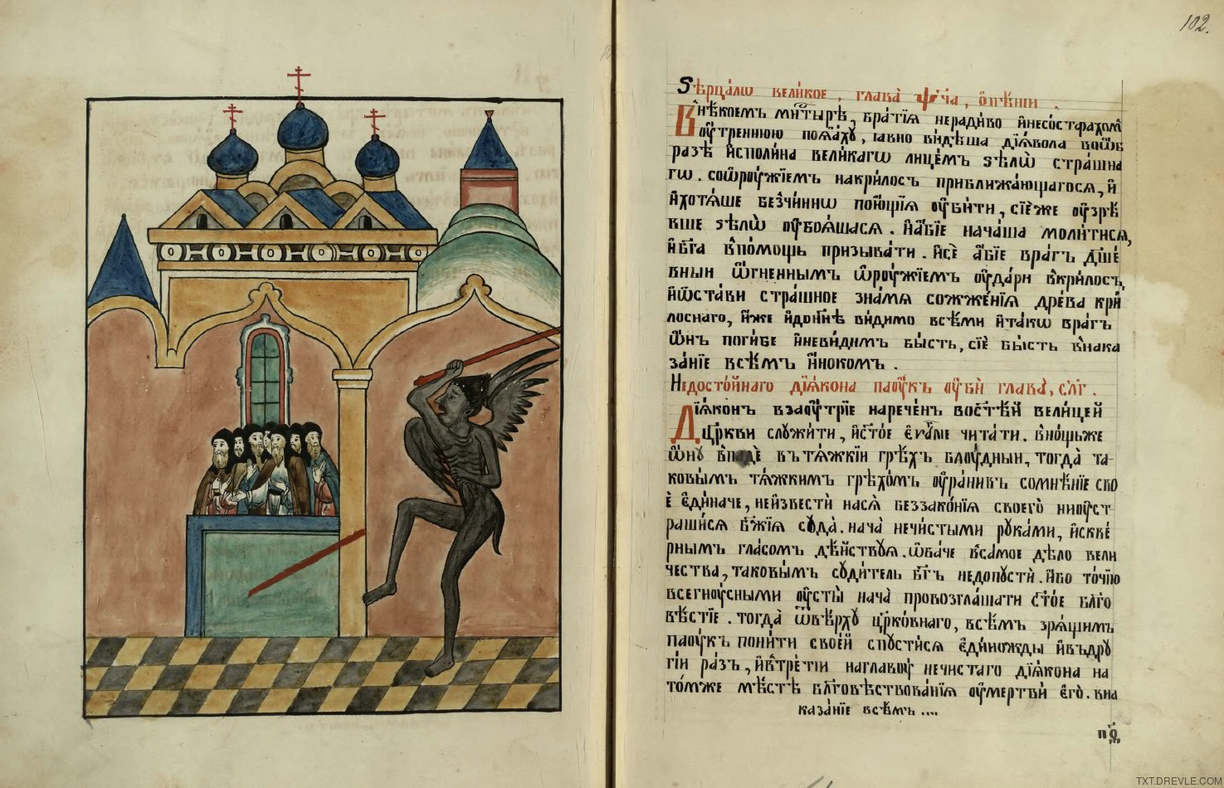 102.
Ѕѣрцало великое, глава ѱ҃ча, ѡпѣнїи.
Внѣкоемъ мн҃тырѣ, братїѧ нерадиво и҆несострахомъ
оу҆треннюю поѧ҆хꙋ, ꙗ҆вно видѣша дїѧ҆вола воѡ҆б
разѣ и҆сполина великагѡ лицемъ ѕѣлѡ страшна
гѡ. соѡ҆рꙋжїемъ накрилосъ приближающагосѧ, и҆
и҆хотѧше безчиннѡ поющїѧ оу҆бити, сїе́же оу҆зрѣ
вше ѕѣлѡ оу҆боѧшасѧ. И҆а҆бїе начаша молитисѧ,
и҆бг҃а впомощь призывати. и҆се а҆бїе врагъ дш҃е
вныи ѻ҆гненнымъ ѡ҆рꙋжїемъ оу҆дари вкрилосъ,
и҆ѡ҆стави страшное знамѧ сожженїѧ древа кри
лоснаго, и҆же и҆донн҃ѣ видимо всѣми и҆такѡ врагъ
ѻ҆нъ погибе и҆невидимъ бысть, сїе бысть внака
занїе всѣмъ и҆нокомъ.
Недостойнаго дїѧ҆кона паоу҆къ оу҆би глава, сл҃г.
Дїѧ҆конъ взаоу҆трїе нареченъ востѣй велицей
цр҃кви слꙋжити, и҆ст҃ое є҆ѵⷢ҇лїе читати. внощьже
ѻ҆нꙋ впаде въ тѧжкїи грѣхъ блꙋдныи, тогда та-
ковымъ тѧжкимъ грѣхомъ оу҆ранивъ сомнѣнїе сво
е҆ є҆диначе, неизвести насѧ беззаконїѧ своего ниоу҆ст
рашисѧ бж҃їѧ сꙋда. нача нечистыми рꙋками, и҆скве
рнымъ гласомъ дѣйствꙋѧ. ѻ҆баче всамое дѣло вели
чества, таковымъ сꙋдитель бг҃ъ недопꙋсти. И҆бо точїю
всегнꙋсными оу҆сты нача провозглашати ст҃ое бл҃го
вѣстїе. тогда ѿверхꙋ цр҃ковнаго, всѣмъ зрѧщимъ
паоу҆къ понити своей спꙋстисѧ є҆диножды и҆въдрꙋ
гїи разъ, и҆втретїи наглавꙋ нечистаго дїѧ҆кона на
томже мѣстѣ бл҃говѣствованїѧ оу҆мертви е҆го. вна
казанїе всѣмъ....
TXT.DREVLE.COM